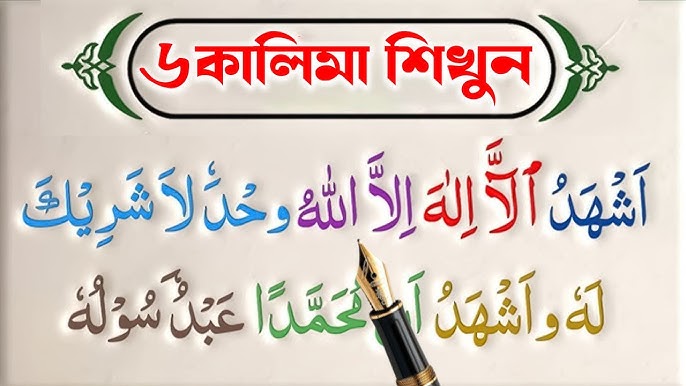 ৬কালিমা শিখুন
اَشْهَدُ اَلَّآ اِلٰهَ اِلاَّ اللهُ وحْدَهٗ لاَ شَرِيْكَ
لَهٗ و اَشْهَدُ مُحَمَّدًا عَبْدُ سُوْلُهٗ